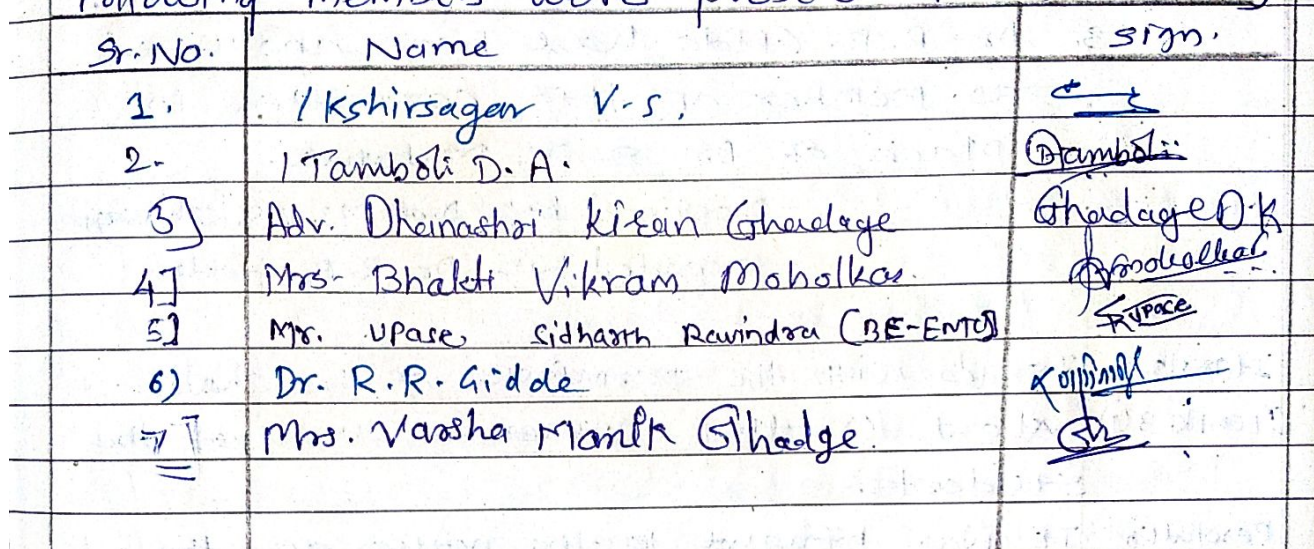 Following members were present
Sr. No. Name sign.
1. / Kshirsagar V.S.
2. / Tamboli D. A. Dambolii
3] Adv. Dhanashri Kiran Ghadage Ghadage D.K
4] Mrs- Bhakti Vikram Moholkar. Bmoholkar
5] Mr. Upase Sidharth Ravindra (BE-ENTC) Rupase
6) Dr. R. R. Gidde
7] Mrs. Varsha Manik Ghadge.